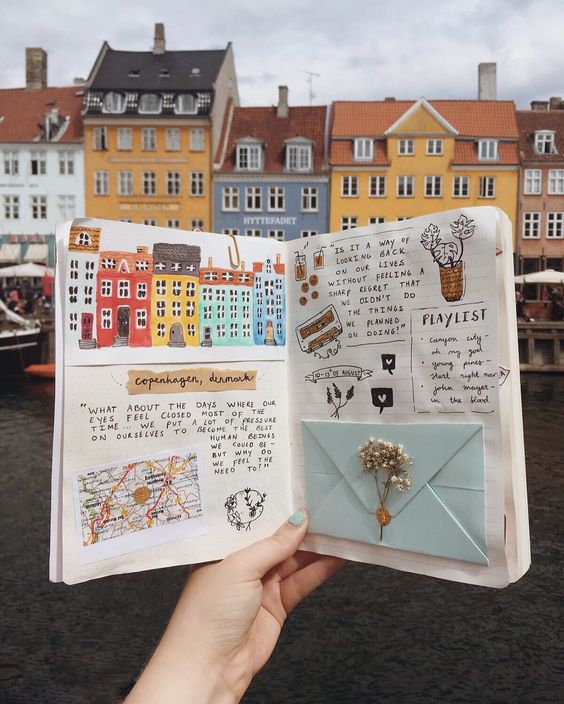 HYTTEFADET
copenhagen, denmark
"WHAT ABOUT THE DAYS WHERE OUR
EYES FEEL CLOSED MOST OF THE
TIME... WE PUT A LOT OF PRESSURE
ON OURSELVES TO BECOME THE BEST
HUMAN BEINGS
WE COULD BE-
BUT WHY DO
WE FEEL THE
NEED TO?"
"IS IT A WAY OF
LOOKING BACK
ON OUR LIVES
WITHOUT FEELING A
SHARP REGRET THAT
WE DIDN'T DO
THE THINGS
WE PLANNED
ON DOING?"
10-13th OF AUGUST
PLAYLIST
canyon city
oh my god
young pines-
start right now
john mayer-
in the blood